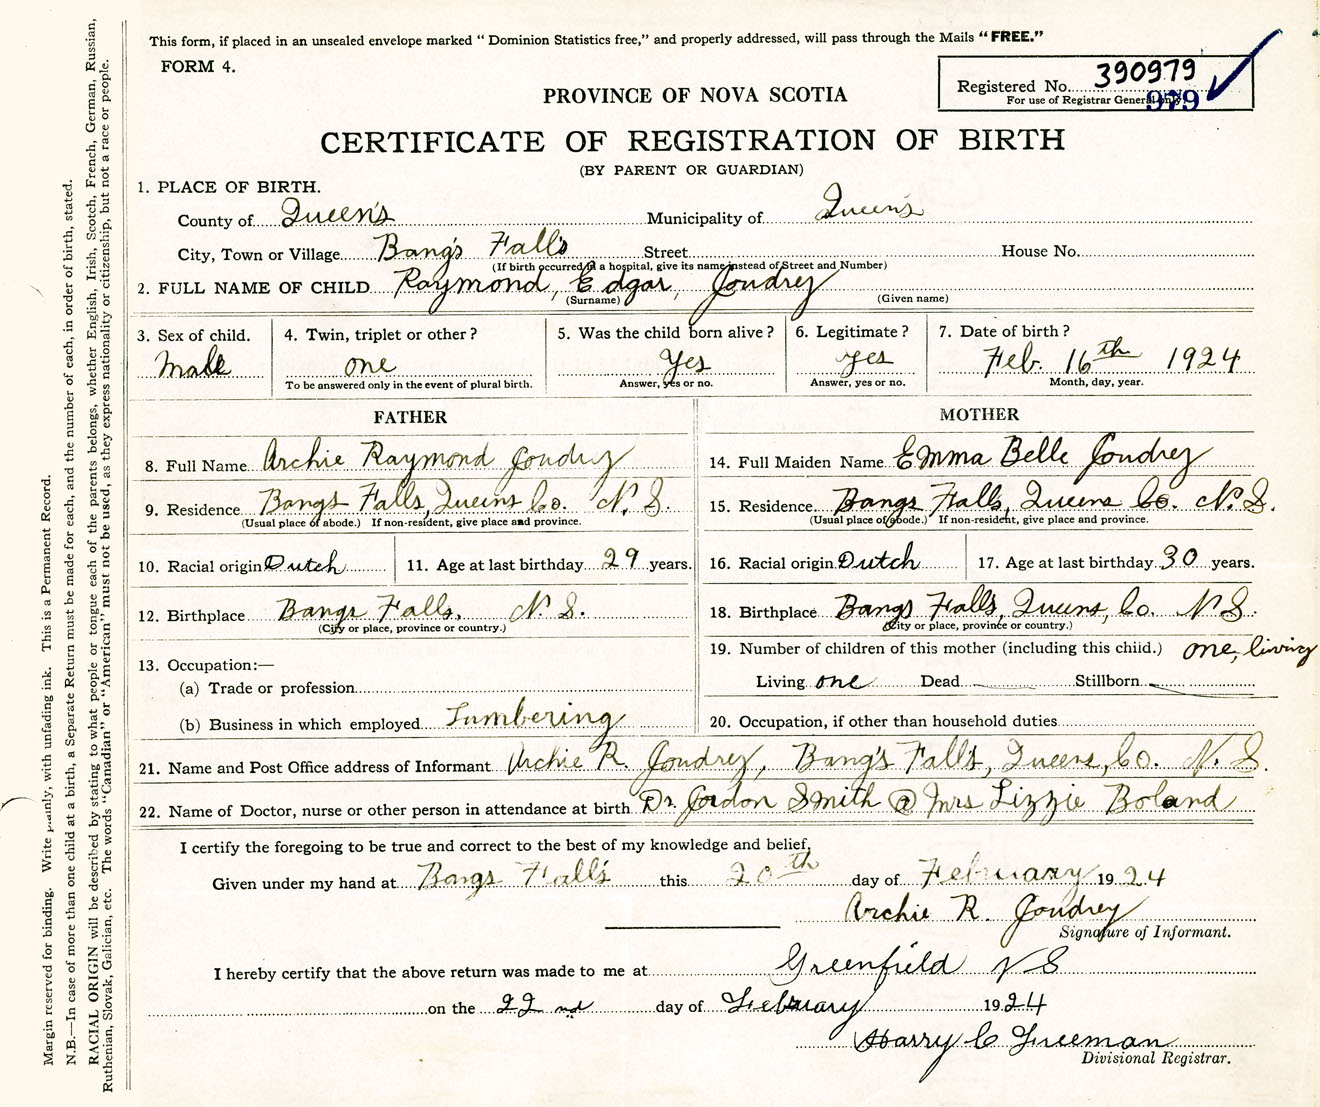 This form, if placed in an unsealed envelope marked "Dominion Statistics free," and properly addressed, will pass through the Mails "FREE."
FORM 4.
Registered No. 390979
For use of Registrar General only.
979
PROVINCE OF NOVA SCOTIA
CERTIFICATE OF REGISTRATION OF BIRTH
(BY PARENT OR GUARDIAN)
1. PLACE OF BIRTH.
County of Queen's Municipality of Queen's
City, Town or Village Bang's Falls Street House No.
(If birth occurred in a hospital, give its name instead of Street and Number)
2. FULL NAME OF CHILD Raymond, Edgar, Joudrey
(Surname) (Given name)
3. Sex of child. 4. Twin, triplet or other? 5. Was the child born alive? 6. Legitimate? 7. Date of birth?
Male one Yes yes Feb. 16th 1924
To be answered only in the event of plural birth. Answer, yes or no. Answer, yes or no. Month, day, year.
FATHER MOTHER
8. Full Name Archie Raymond Joudrey 14. Full Maiden Name Emma Belle Joudrey
9. Residence Bangs Falls, Queens Co. N.S. 15. Residence Bangs Falls, Queens Co. N.S.
(Usual place of abode.) If non-resident, give place and province. (Usual place of abode.) If non-resident, give place and province.
10. Racial origin Dutch 11. Age at last birthday 29 years. 16. Racial origin Dutch 17. Age at last birthday 30 years.
12. Birthplace Bangs Falls, N.S. 18. Birthplace Bangs Falls, Queens, Co. N.S.
(City or place, province or country.) (City or place, province or country.)
13. Occupation:— 19. Number of children of this mother (including this child.) one, living
(a) Trade or profession Living one Dead Stillborn
(b) Business in which employed Lumbering 20. Occupation, if other than household duties
21. Name and Post Office address of Informant Archie R. Joudrey, Bang's Falls, Queens, Co. N.S.
22. Name of Doctor, nurse or other person in attendance at birth Dr. Gordon Smith @ Mrs Lizzie Boland
I certify the foregoing to be true and correct to the best of my knowledge and belief,
Given under my hand at Bangs Falls this 20th day of February 1924
Archie R. Joudrey
Signature of Informant.
I hereby certify that the above return was made to me at Greenfield N S
on the 22nd day of February 1924
Harry C Freeman
Divisional Registrar.
Margin reserved for binding. Write plainly, with unfading ink. This is a Permanent Record.
N.B.—In case of more than one child at a birth, a Separate Return must be made for each, and the number of each, in order of birth, stated.
RACIAL ORIGIN will be described by stating to what people or tongue each of the parents belongs, whether English, Irish, Scotch, French, German, Russian,
Ruthenian, Slovak, Galician, etc. The words "Canadian" or "American" must not be used, as they express nationality or citizenship, but not a race or people.